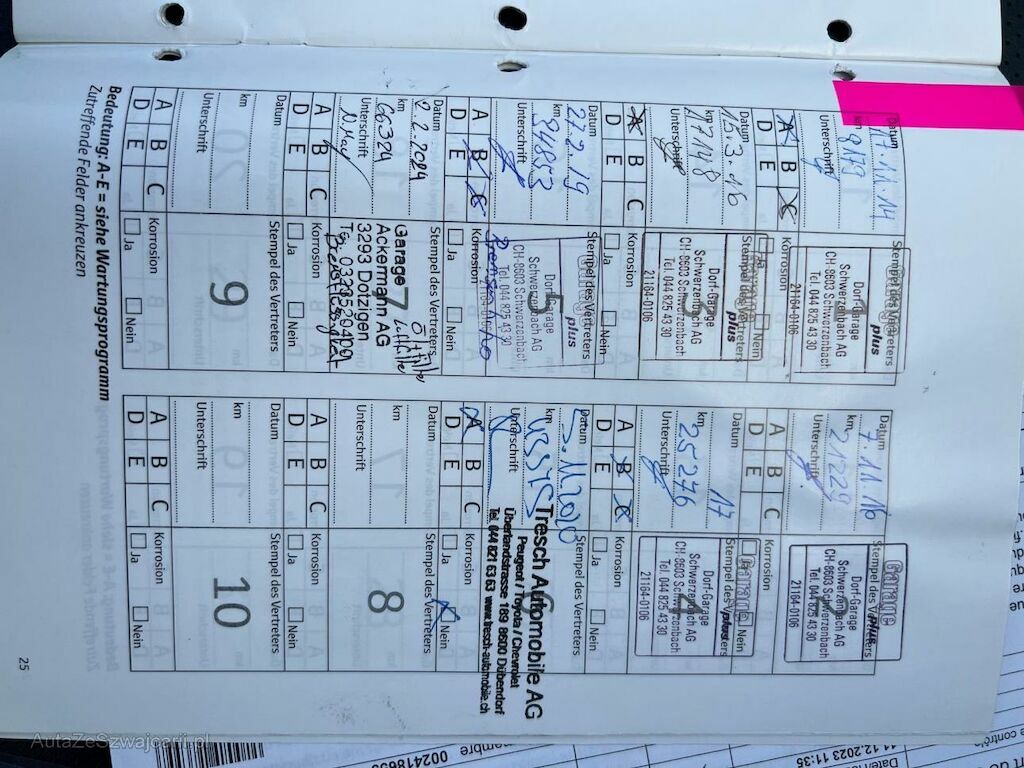 Datum 17.11.14
km 9179
Unterschrift
Stempel des Vertreters
Garage plus
Dorf-Garage
Schwerzenbach AG
CH-8603 Schwerzenbach
Tel. 044 825 43 30
21164-0106
A B C
D E
Korrosion
Ja Nein
Datum 7.11.16
km 21229
Unterschrift
Stempel des Vertreters
Garage plus
Dorf-Garage
Schwerzenbach AG
CH-8603 Schwerzenbach
Tel. 044 825 43 30
21164-0106
A B C
D E
Korrosion
Ja Nein
Datum 15.3.16
km 17148
Unterschrift
Stempel des Vertreters
plus
Dorf-Garage
Schwerzenbach AG
CH-8603 Schwerzenbach
Tel. 044 825 43 30
21164-0106
A B C
D E
Korrosion
Ja Nein
Datum 17
km 25276
Unterschrift
Stempel des Vertreters
Garage plus
Dorf-Garage
Schwerzenbach AG
CH-8603 Schwerzenbach
Tel. 044 825 43 30
21164-0106
A B C
D E
Korrosion
Ja Nein
Datum 27.2.19
km 34853
Unterschrift
Stempel des Vertreters
5
plus
Dorf-Garage
Schwerzenbach AG
CH-8603 Schwerzenbach
Tel. 044 825 43 30
21164-0106
A B C
D E
Korrosion
Ja Nein
Datum
km
Unterschrift
Stempel des Vertreters
6
Tresch Automobile AG
Peugeot / Toyota / Chevrolet
Überlandstrasse 189 8600 Dübendorf
Tel. 044 821 63 63 www.tresch-automobile.ch
A B C
D E
Korrosion
Ja Nein
Datum 2.2.2024
km 66324
Unterschrift
Stempel des Vertreters
7
Garage
Ackermann AG
3293 Dotzigen
Tel. 0323520400
Ölfilter
Luftfilter
A B C
D E
Korrosion
Ja Nein
Datum
km
Unterschrift
Stempel des Vertreters
8
A B C
D E
Korrosion
Ja Nein
Datum
km
Unterschrift
Stempel des Vertreters
9
A B C
D E
Korrosion
Ja Nein
Datum
km
Unterschrift
Stempel des Vertreters
10
A B C
D E
Korrosion
Ja Nein
Bedeutung: A-E = siehe Wartungsprogramm
Zutreffende Felder ankreuzen
25
AutaZeSzwajcarii.pl
11.12.2023 11:35